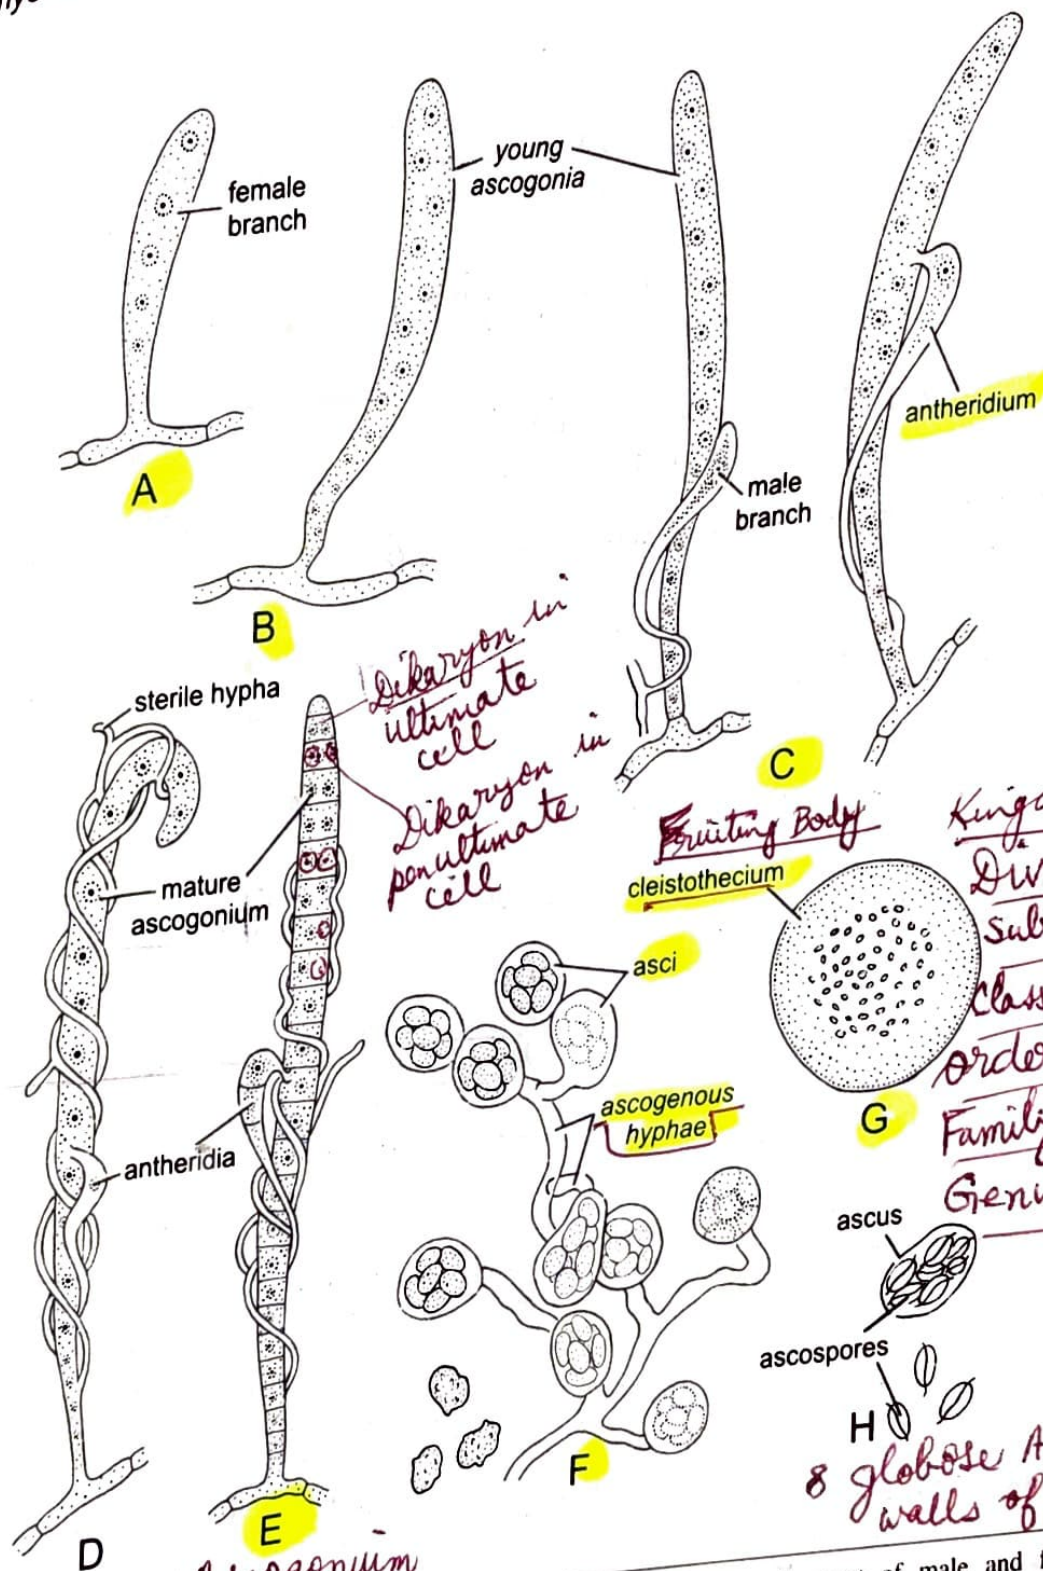 female
branch
young
ascogonia
A
antheridium
male
branch
B
C
sterile hypha
Dikaryon in
ultimate
cell
Dikaryon in
penultimate
cell
mature
ascogonium
antheridia
D
E
Fruiting Body
cleistothecium
asci
ascogenous
hyphae
F
G
ascus
ascospores
H
8 globose A
walls of
Div
Sub
Class
orde
Famil
Gen
of male and f